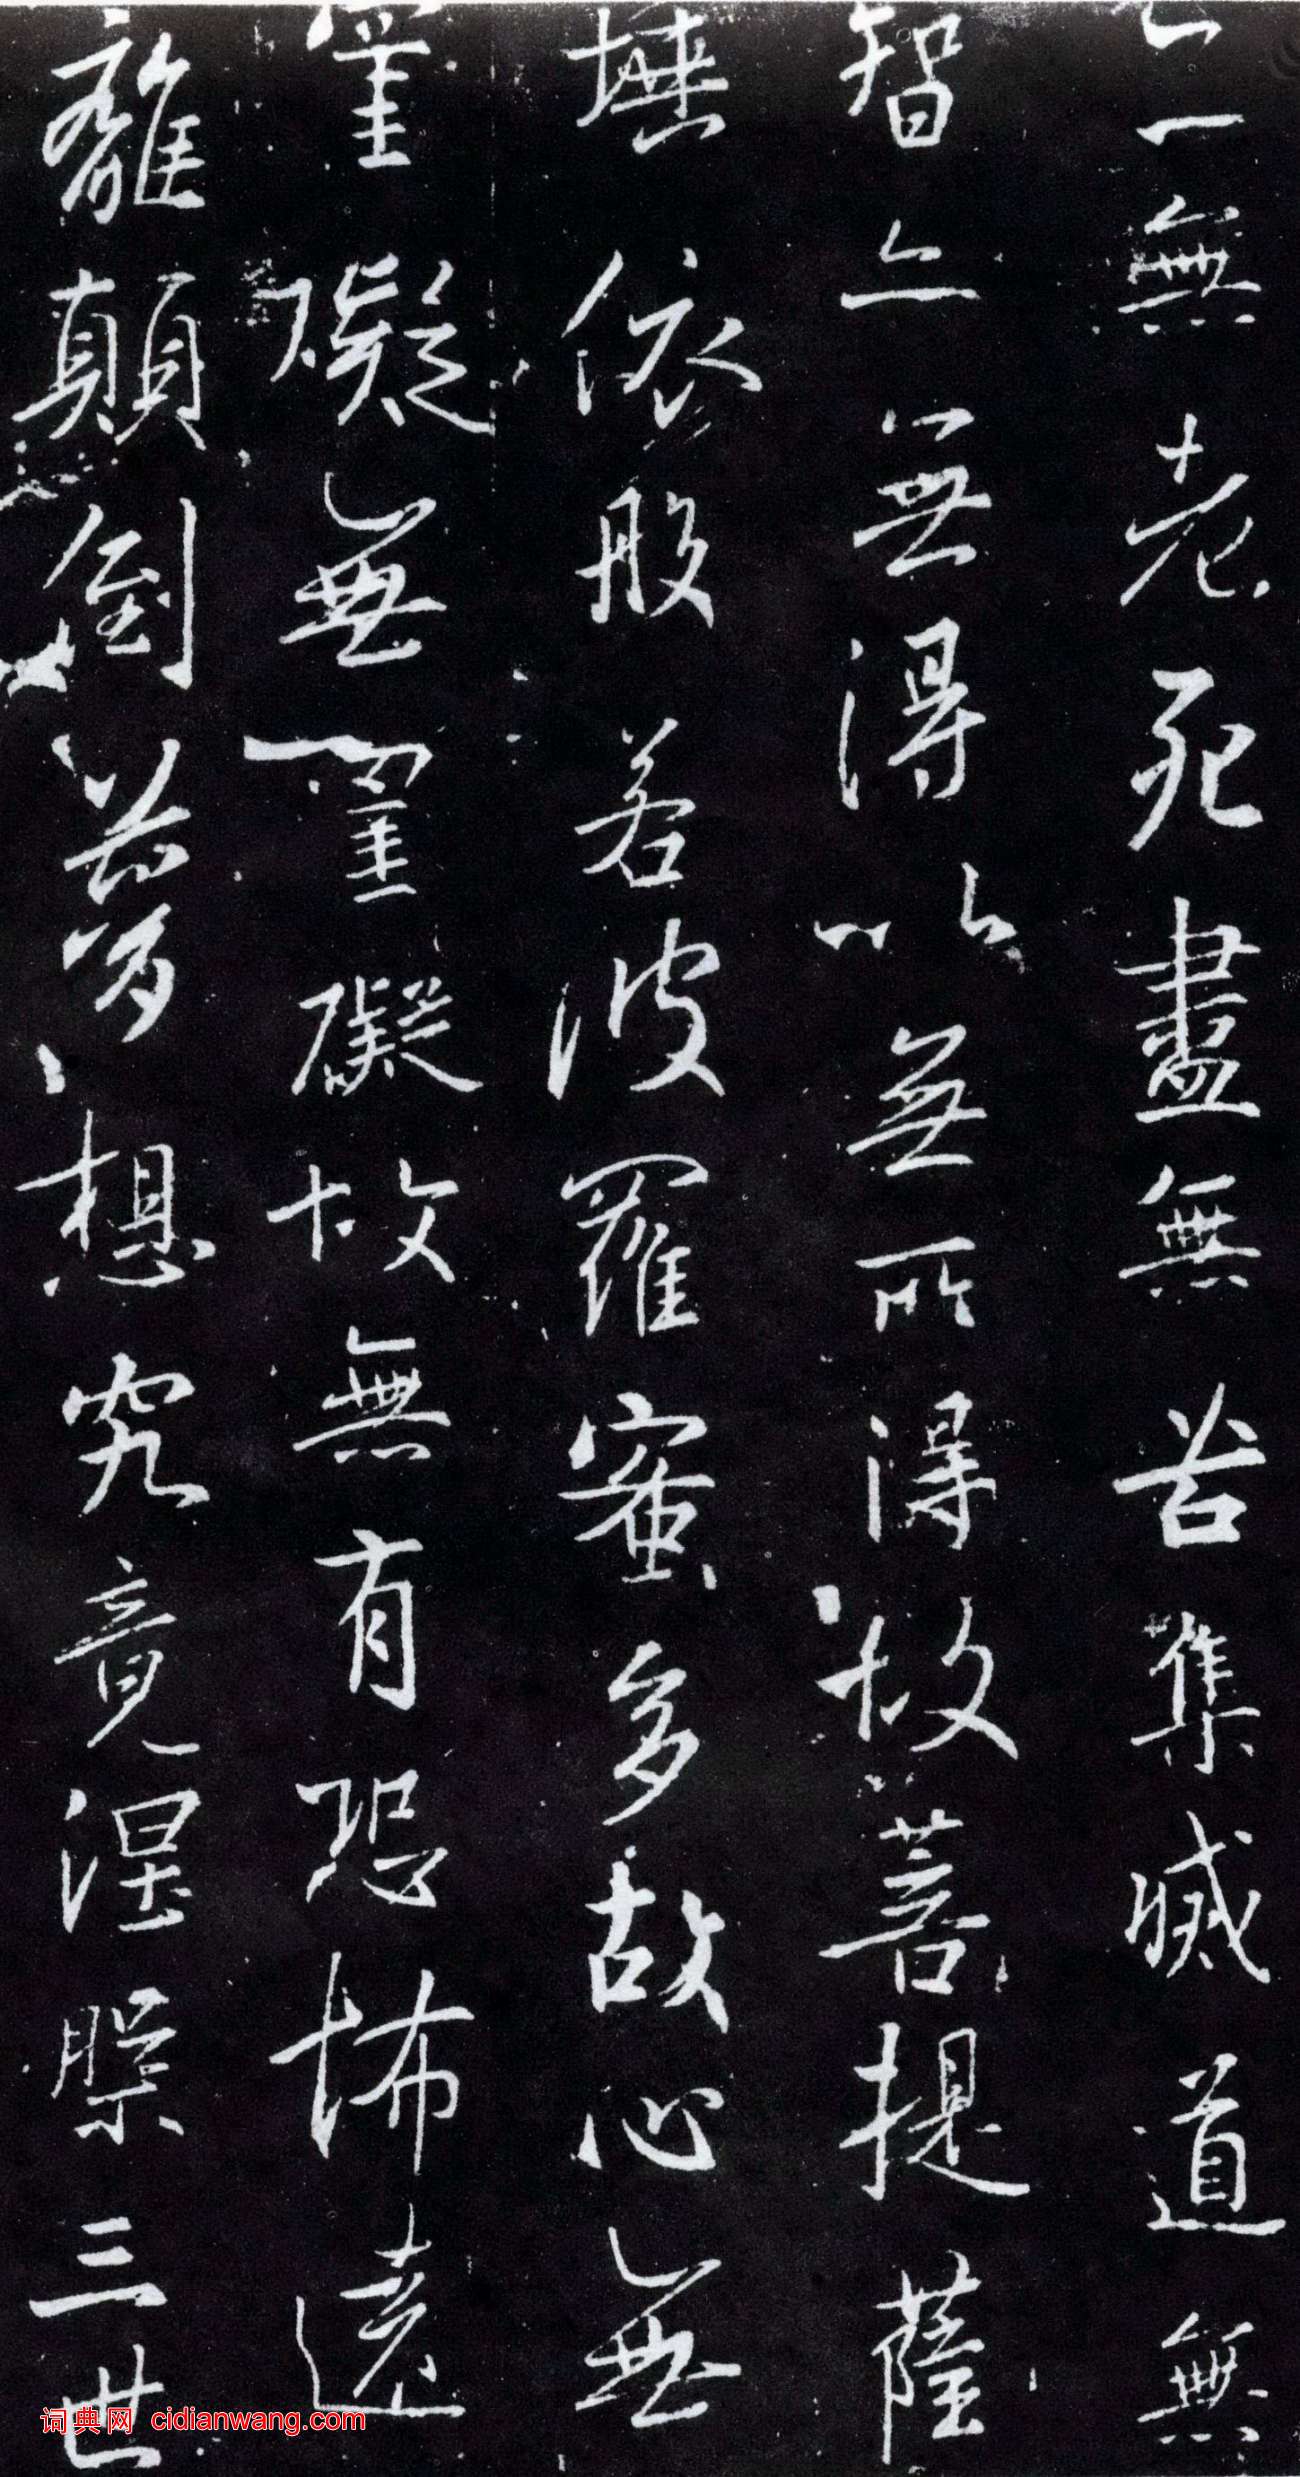 亦無老死盡無苦集滅道無
智亦無得以無所得故菩提薩
埵依般若波羅蜜多故心無
罣礙無罣礙故無有恐怖遠
離顛倒夢想究竟涅槃三世
词典网 cidianwang.com